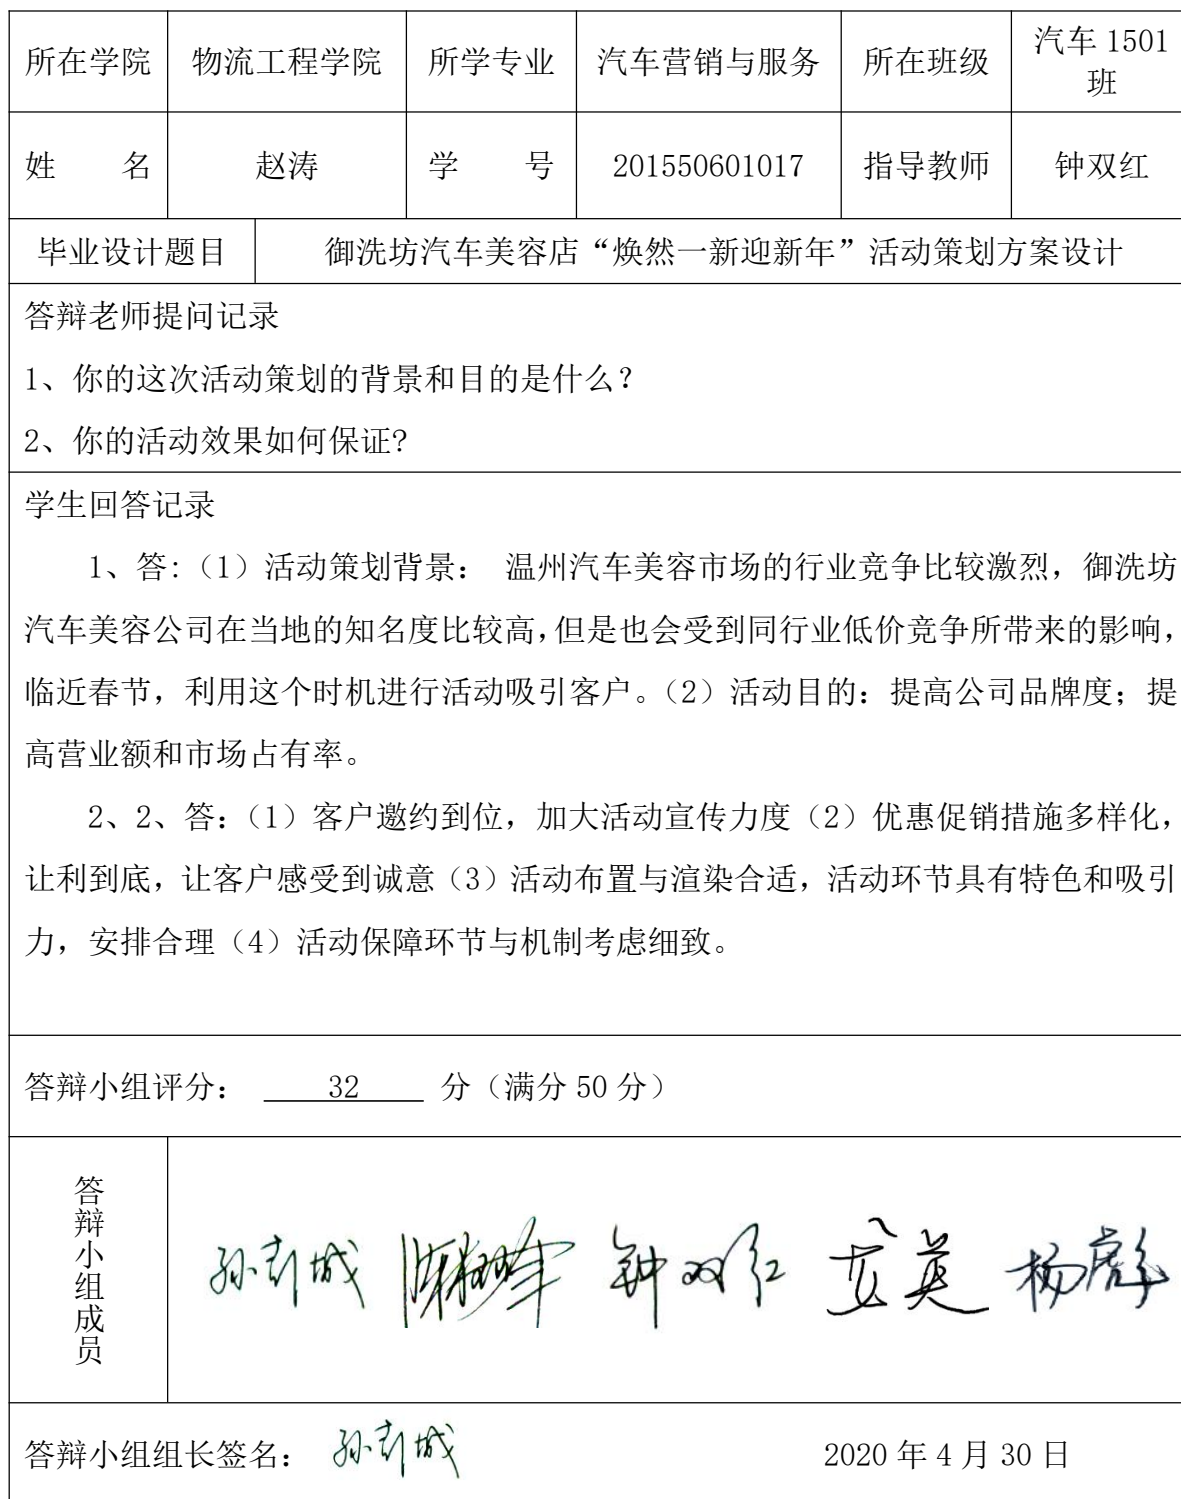 所在学院 物流工程学院 所学专业 汽车营销与服务 所在班级 汽车 1501
班
姓 名 赵涛 学 号 201550601017 指导教师 钟双红
毕业设计题目 御洗坊汽车美容店“焕然一新迎新年”活动策划方案设计
答辩老师提问记录
1、你的这次活动策划的背景和目的是什么？
2、你的活动效果如何保证?
学生回答记录
1、答:（1）活动策划背景： 温州汽车美容市场的行业竞争比较激烈，御洗坊
汽车美容公司在当地的知名度比较高，但是也会受到同行业低价竞争所带来的影响，
临近春节，利用这个时机进行活动吸引客户。（2）活动目的：提高公司品牌度；提
高营业额和市场占有率。
2、2、答：（1）客户邀约到位，加大活动宣传力度（2）优惠促销措施多样化，
让利到底，让客户感受到诚意（3）活动布置与渲染合适，活动环节具有特色和吸引
力，安排合理（4）活动保障环节与机制考虑细致。
答辩小组评分： 32 分（满分 50 分）
答辩小组成员 钟双红
答辩小组组长签名：
2020 年 4 月 30 日